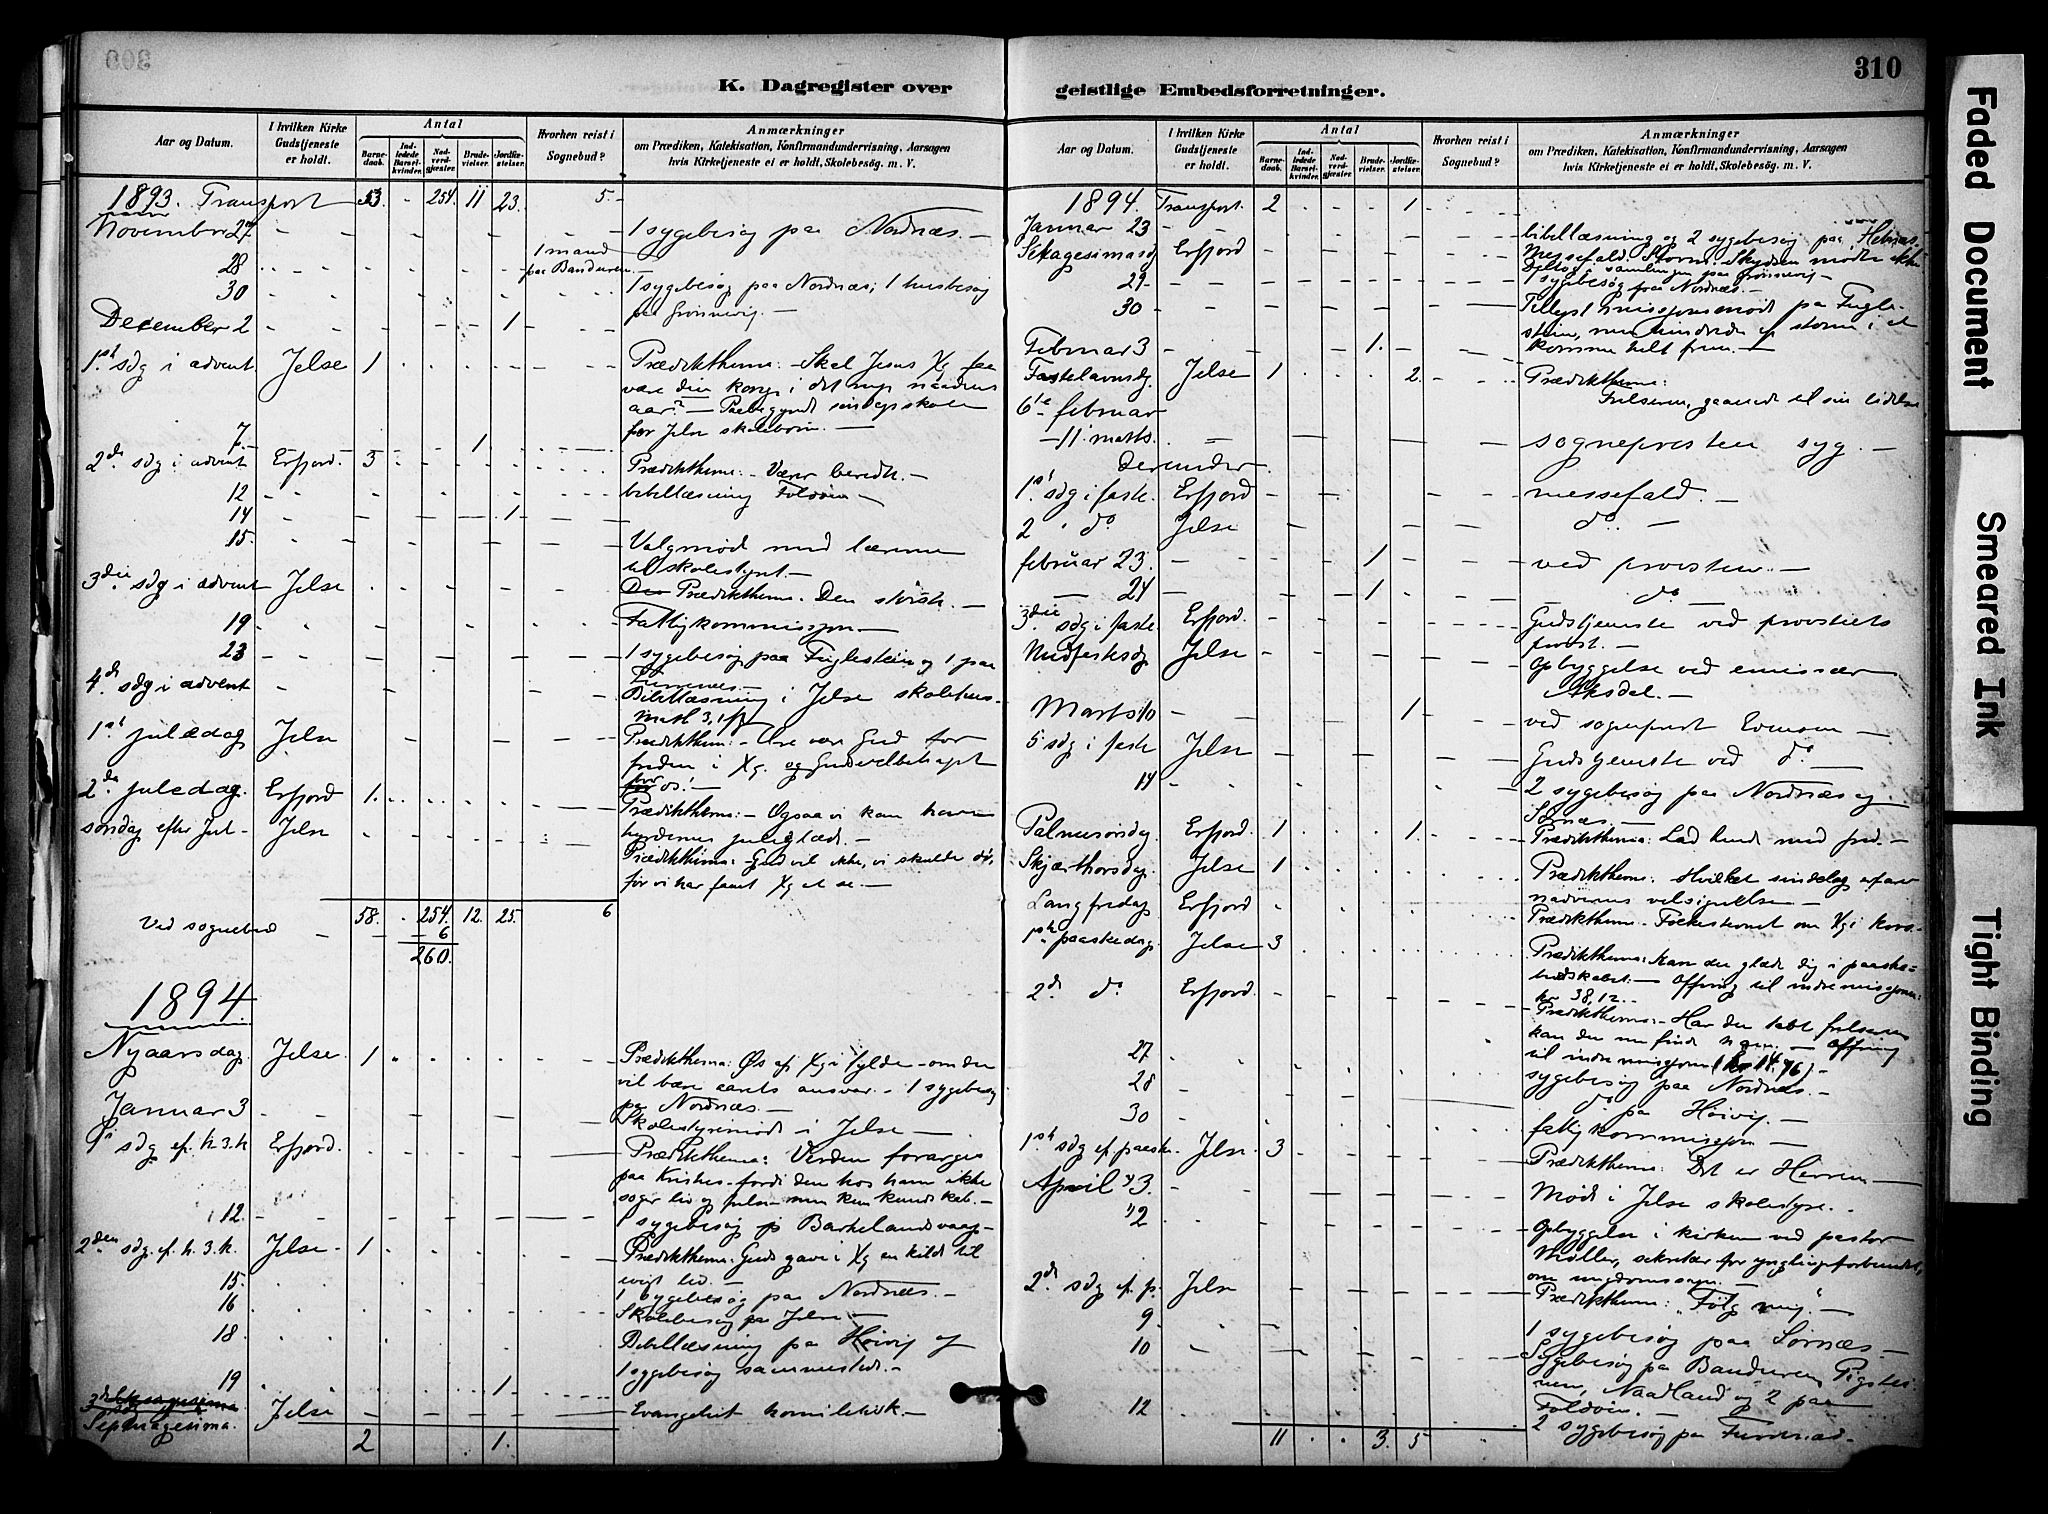 310
K. Dagregister over
Aar og Datum.
I hvilken Kirke Gudstjeneste er holdt.
Antal
Barnedaab.
Indledede Barselkvinder.
Nadverdgjæster.
Brudevielser.
Jordfæstelser.
Hvorhen reist i Sognebud?
Anmærkninger
om Prædiken, Katekisation, Konfirmandundervisning, Aarsagen
hvis Kirketjeneste ei er holdt, Skolebesög. m. V.
1893. Transport 53 - 254 11 23. 5.
November 27 1 sygebesøg paa Nordnæs. -
28 1 mand paa Banduren. -
30 1 sygebesøg paa Nordnæs; 1 husbesøg
paa Grønnevig. -
December 2 1
1st sdg i advent Jelse 1 Prædikthema: - Skal Jesus Xg faa
være din konge i det nye naadens
aar? - Paabegyndt søndagsskolen
for Jelse skolebørn. -
7. - 1
2den sdg i advent Erfjord. 3 Prædikthema: - Værer beredte. -
12 bibellæsning Foldøen -
14 1
15. Valgmøde med lærerne
til skolestyret. -
3die sdg i advent Jelse Prædikthema. Den største. -
19 Fattigkommissjon -
23 1 sygebesøg paa Fuglestein og 1 paa
4de sdg i advent Bibellæsning i Jelse skolehus.
1st juledag Jelse Prædikthema: - Ære være Gud for
freden i Xg. og Guds velbehag
for os! -
2den juledag. Erfjord 1. Prædikthema: - Ogsaa vi kan have
hyrdernes juleglæde. -
søndag efter Jul - Jelse Prædikthema: Gud vil ikke, vi skulde dø,
før vi har faaet Xg at se. -
58. 254. 12. 25. 6
Ved sognebud 6
260.
1894
Nyaarsdag Jelse. 1 Prædikthema:
vil bære aarets ansvar. - 1 sygebesøg
paa Nordnæs. -
Januar 3 Skolestyremøde i Jelse -
1st sdg ef. h. 3. k Erfjord. Prædikthema: Verden forarges
paa Kristus - fordi den hos ham ikke
søger liv og frelse men kun kundskab. -
12. 1 sygebesøg p Barkelandsvaag -
2den sdg. ef. h. 3. k. Jelse - 1 Prædikthema: Guds gave i Xg en kilde til
evigt liv. -
15. 1 sygebesøg paa Nordnæs. -
16 Skolebesøg paa Jelse -
18 Bibellæsning paa Høivig og
1 sygebesøg sammesteds. -
19 1
Septuagesima. Jelse Evangeliet homiletisk. -
2 1.
geistlige Embedsforretninger.
Aar og Datum.
I hvilken Kirke Gudstjeneste er holdt.
Antal
Barnedaab.
Indledede Barselkvinder.
Nadverdgjæster.
Brudevielser.
Jordfæstelser.
Hvorhen reist i Sognebud?
Anmærkninger
om Prædiken, Katekisation, Konfirmandundervisning, Aarsagen
hvis Kirketjeneste ei er holdt, Skolebesög. m. V.
1894. Transport. 2 1
Januar 23 bibellæsning og 2 sygebesøg paa Hebnæs.
Seksagesimasdg Erfjord Messefald. Storm. Skydsen mødte ikke
Deltog i samlingen paa Grønnevig -
29 - 1 sygebesøg paa Nordnæs. -
30 Tillyst missionsmøde paa Fugle-
stein, men hindredes af storm i at
Februar 3 1. komme helt frem. -
Fastelavnsdg Jelse 1 2. Prædikthema:
Frelseren, gaaende til sin lidelse
6te februar
- 11. marts. sognepresten syg. -
Derunder.
1st sdg i faste. Erfjord messefald. -
2 do Jelse do. -
februar 23. 1 ved provsten. -
24 1 do
3die sdg i faste. Erfjord. Gudstjeneste ved provstiets
provst. -
Midfastesdg Jelse Opbyggelse ved emissær
Aksdal. -
Marts 10 1 ved sogneprest Evensen -
5 sdg i faste Jelse Gudstjeneste ved do
14 2 sygebesøg paa Nordnæs og
Sørnæs. -
Palmesøndag Erfjord. 1 1 Prædikthema: Lad hende med fred. -
Skjærthorsdag. Jelse 1 Prædikthema: Hvilket sindelag
nadverens velsignelse -
Langfredag Erfjord Prædikthema. Folkestemmet om Xg i kors.
1ste paaskedag. Jelse 3 Prædikthema: Kan du glæde dig i paaske-
budskabet. - Offring til indremissjonen:
kr 38,12. -
2den do Erfjord. Prædikthema: - Har du tabt frelseren
kan du nu finde ham. - Offring
til indremissjonen (kr 14.46) -
27 sygebesøg paa Nordnæs. -
28 do paa Høivig. -
30 fattigkommissjon -
1ste sdg ef. paaske. Jelse. 3 Prædikthema: Det er Herren -
April 3. Møde i Jelse skolestyre. -
2 Opbyggelse i kirken ved pastor
Møller, sekretær for ynglingeforbundet,
om ungdomssagen. -
2den sdg ef. p. Jelse Prædikthema: "Følg mig." -
9 1 sygebesøg paa Sørnæs -
10 Sygebesøg paa Banduren,
Naadland og 2 paa
Foldøen. -
12 2 sygebesøg paa
11 3. 5
Faded Document
Smeared Ink
Tight Binding